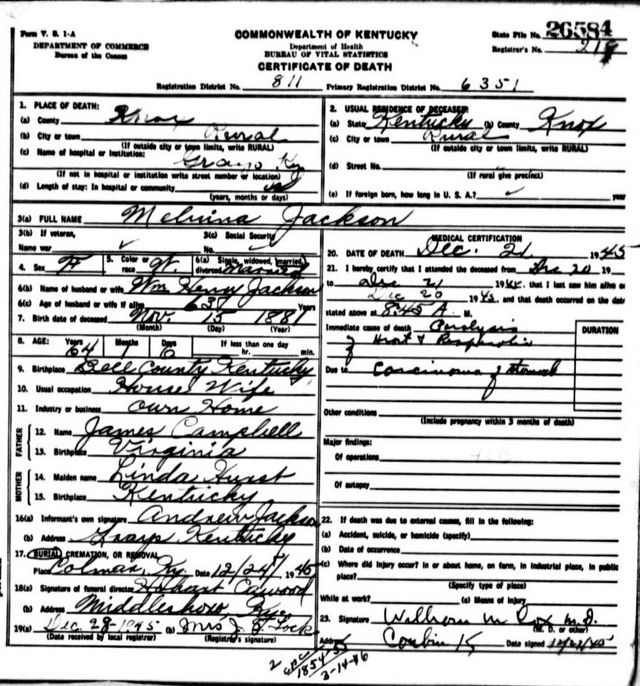 Form V. S. 1-A
DEPARTMENT OF COMMERCE
Bureau of the Census
COMMONWEALTH OF KENTUCKY
Department of Health
BUREAU OF VITAL STATISTICS
CERTIFICATE OF DEATH
State File No. 26584
Registrar's No.
Registration District No. 811 Primary Registration District No. 6351
1. PLACE OF DEATH:
(a) County Knox
(b) City or town Rural
(If outside city or town limits, write RURAL)
(c) Name of hospital or institution:
Grays Ky
(If not in hospital or institution write street number or location)
(d) Length of stay: In hospital or community
(years, months or days)
2. USUAL RESIDENCE OF DECEASED:
(a) State Kentucky (b) County Knox
(c) City or town Rural
(If outside city or town limits, write RURAL)
(d) Street No.
(If rural give precinct)
(e) If foreign born, how long in U. S. A.? ✓
3(a) FULL NAME Melvina Jackson
3(b) If veteran, Name war ✓ 3(c) Social Security No. ✓
4. Sex F 5. Color or race W. 6(a) Single, widowed, married, divorced Married
6(b) Name of husband or wife Wm Henry Jackson
6(c) Age of husband or wife if alive 63 Years
7. Birth date of deceased Nov. 15 1881
(Month) (Day) (Year)
8. AGE: 64 1 6 If less than one day
hr. min.
9. Birthplace Bell County Kentucky
10. Usual occupation House Wife
11. Industry or business Own Home
FATHER
12. Name James Campbell
13. Birthplace Virginia
MOTHER
14. Maiden name Linda Hurst
15. Birthplace Kentucky
16(a) Informant's own signature Andrew Jackson
(b) Address Grays Kentucky
17. BURIAL, CREMATION, OR REMOVAL
Place Colman, Ky. Date 12/24 1945
18(a) Signature of funeral director Hobart Cawood
(b) Address Middlesboro
19(a) Dec 28-1945 (b) Mrs J. Lock
(Date received by local registrar) (Registrar's signature)
MEDICAL CERTIFICATION
20. DATE OF DEATH Dec. 21 1945
21. I hereby certify that I attended the deceased from Dec 20 19
to Dec 21 that I last saw him alive on
Dec 20 1945, and that death occurred on the date
stated above at 8:45 A. M.
Immediate cause of death Paralysis
of Heart & Respiration
Due to Carcinoma of stomach
DURATION
Other conditions
(Include pregnancy within 3 months of death)
Major findings:
Of operations
Of autopsy
22. If death was due to external causes, fill in the following:
(a) Accident, suicide, or homicide (specify)
(b) Date of occurrence
(c) Where did injury occur? In or about home, on farm, in industrial place, in public
place?
(Specify type of place)
While at work? (e) Means of injury
23. Signature William M Cox M.D.
(M. D. or other)
Address Corbin Ky Date signed
1854
3-14-46